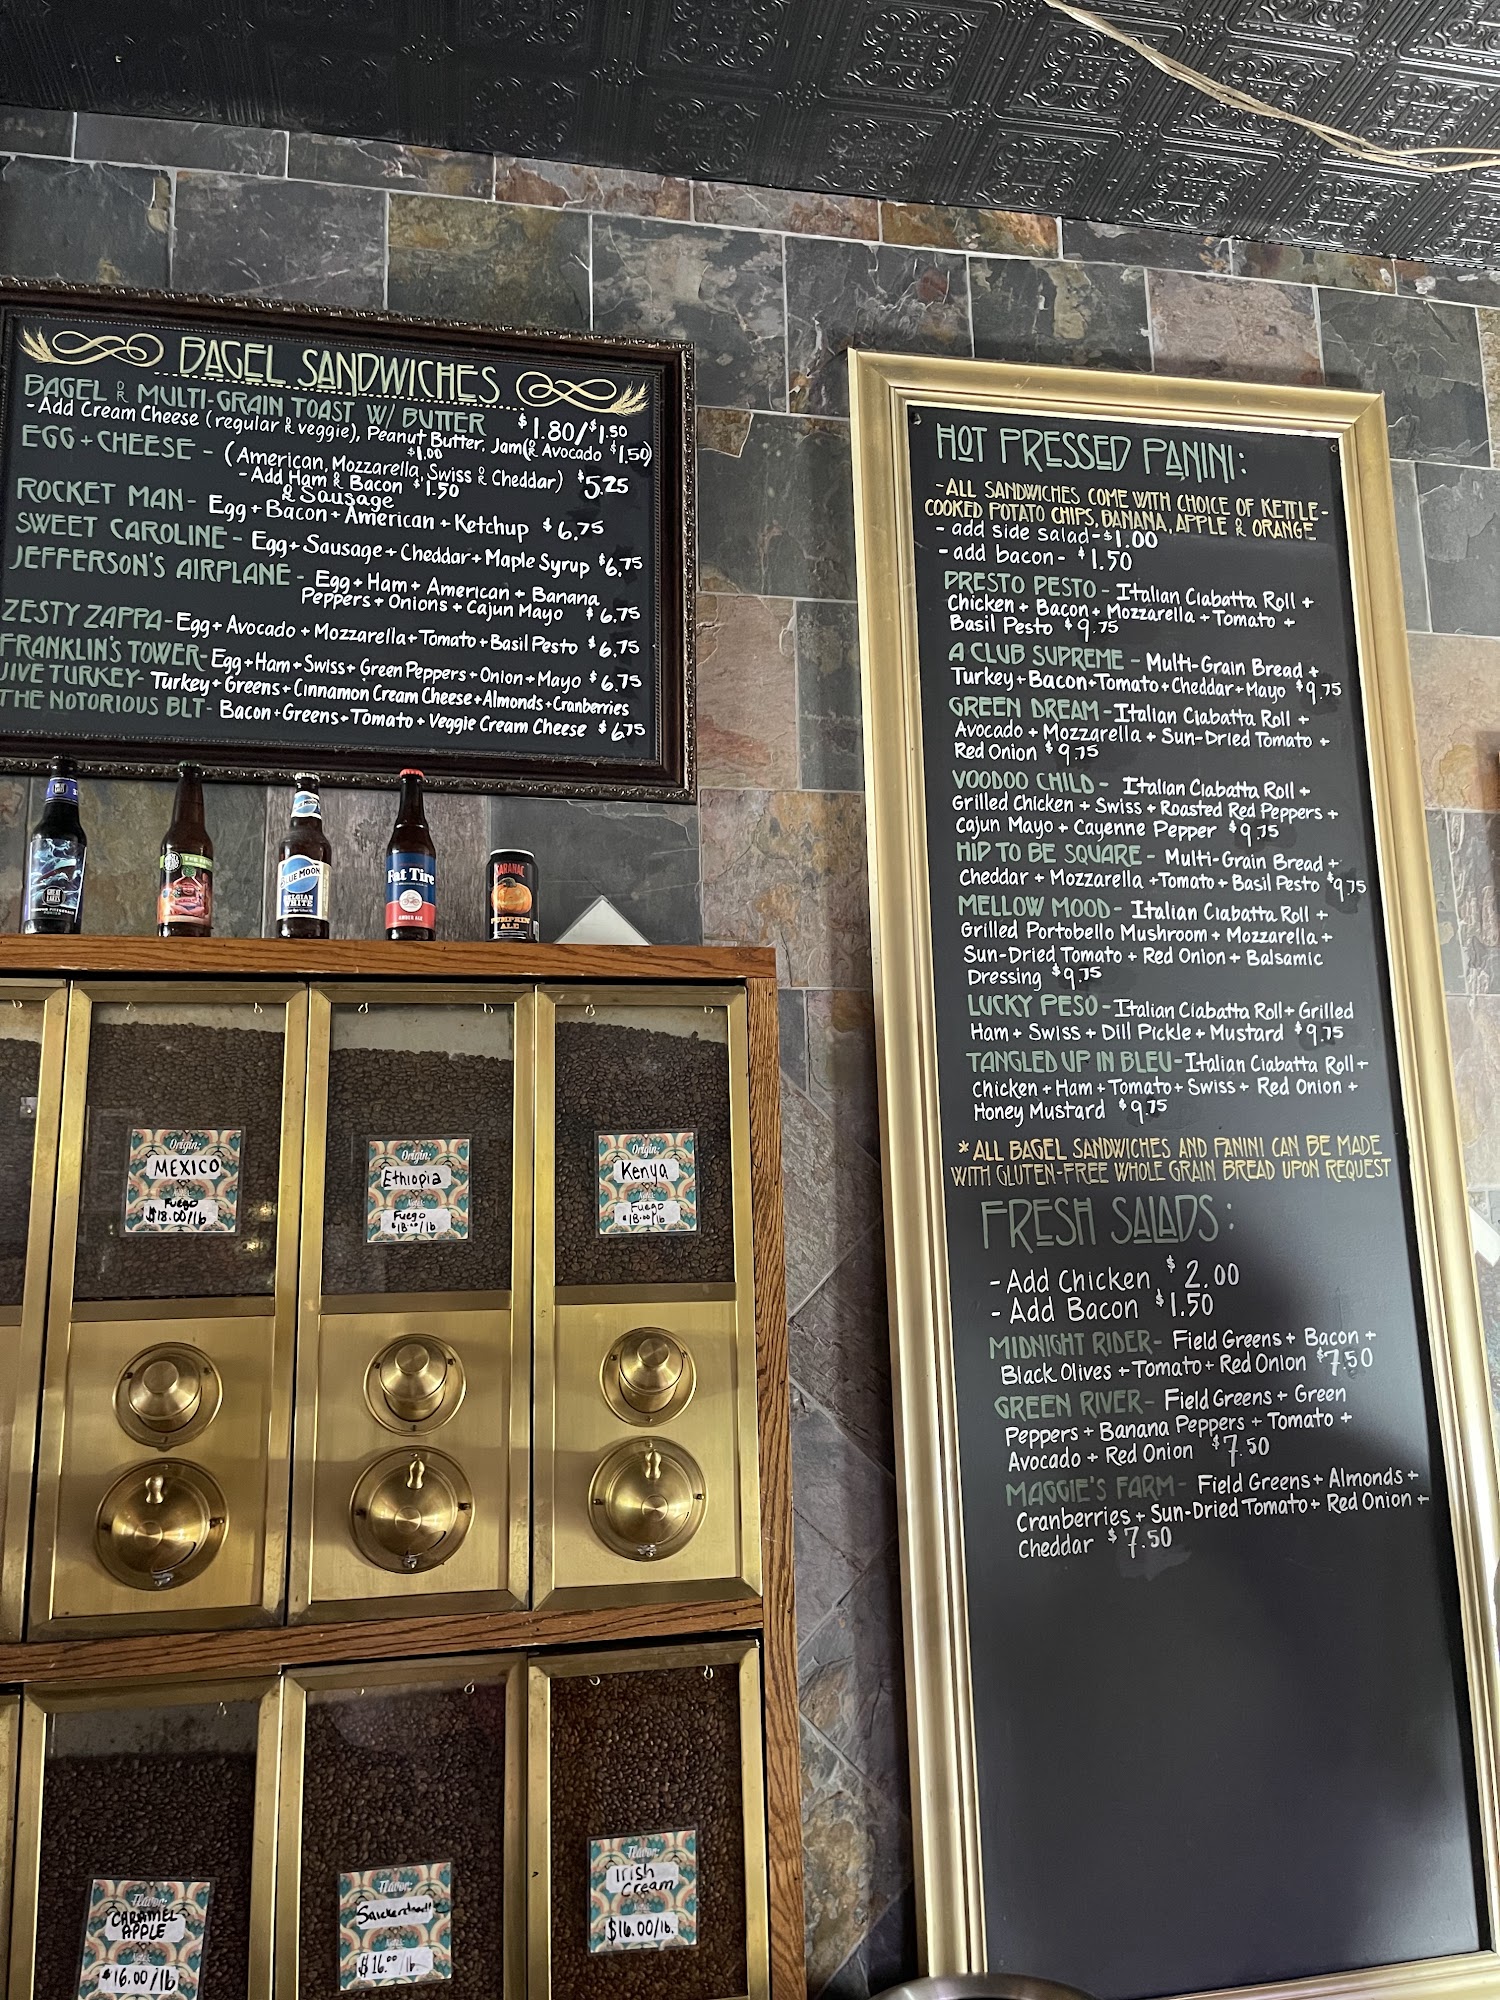 BAGEL SANDWICHES
BAGEL OR MULTI-GRAIN TOAST W/ BUTTER $1.80/$1.50
- Add Cream Cheese (regular & veggie), Peanut Butter, Jam (OR Avocado $1.50)
$1.00
EGG + CHEESE - (American, Mozzarella, Swiss OR Cheddar) $5.25
- Add Ham OR Bacon $1.50
OR Sausage
ROCKET MAN - Egg + Bacon + American + Ketchup $6.75
SWEET CAROLINE - Egg + Sausage + Cheddar + Maple Syrup $6.75
JEFFERSON'S AIRPLANE - Egg + Ham + American + Banana
Peppers + Onions + Cajun Mayo $6.75
ZESTY ZAPPA - Egg + Avocado + Mozzarella + Tomato + Basil Pesto $6.75
FRANKLIN'S TOWER - Egg + Ham + Swiss + Green Peppers + Onion + Mayo $6.75
JIVE TURKEY - Turkey + Greens + Cinnamon Cream Cheese + Almonds + Cranberries
THE NOTORIOUS BLT - Bacon + Greens + Tomato + Veggie Cream Cheese $6.75
HOT PRESSED PANINI:
- ALL SANDWICHES COME WITH CHOICE OF KETTLE-
COOKED POTATO CHIPS, BANANA, APPLE OR ORANGE
- add side salad - $1.00
- add bacon - $1.50
PRESTO PESTO - Italian Ciabatta Roll +
Chicken + Bacon + Mozzarella + Tomato +
Basil Pesto $9.75
A CLUB SUPREME - Multi-Grain Bread +
Turkey + Bacon + Tomato + Cheddar + Mayo $9.75
GREEN DREAM - Italian Ciabatta Roll +
Avocado + Mozzarella + Sun-Dried Tomato +
Red Onion $9.75
VOODOO CHILD - Italian Ciabatta Roll +
Grilled Chicken + Swiss + Roasted Red Peppers +
Cajun Mayo + Cayenne Pepper $9.75
HIP TO BE SQUARE - Multi-Grain Bread +
Cheddar + Mozzarella + Tomato + Basil Pesto $9.75
MELLOW MOOD - Italian Ciabatta Roll +
Grilled Portobello Mushroom + Mozzarella +
Sun-Dried Tomato + Red Onion + Balsamic
Dressing $9.75
LUCKY PESO - Italian Ciabatta Roll + Grilled
Ham + Swiss + Dill Pickle + Mustard $9.75
TANGLED UP IN BLEU - Italian Ciabatta Roll +
Chicken + Ham + Tomato + Swiss + Red Onion +
Honey Mustard $9.75
* ALL BAGEL SANDWICHES AND PANINI CAN BE MADE
WITH GLUTEN-FREE WHOLE GRAIN BREAD UPON REQUEST
FRESH SALADS:
- Add Chicken $2.00
- Add Bacon $1.50
MIDNIGHT RIDER - Field Greens + Bacon +
Black Olives + Tomato + Red Onion $7.50
GREEN RIVER - Field Greens + Green
Peppers + Banana Peppers + Tomato +
Avocado + Red Onion $7.50
MAGGIE'S FARM - Field Greens + Almonds +
Cranberries + Sun-Dried Tomato + Red Onion +
Cheddar $7.50
GREAT
LAKES
BLUE MOON
BLUE MOON
BELGIAN
WHITE
Fat Tire
AMBER ALE
SARANAC
PUMPKIN
ALE
Origin:
MEXICO
Fuego
$18.00/lb
Origin:
Ethiopia
Notes:
Fuego
$18.00/lb
Origin:
Kenya
Notes:
Fuego
$18.00/lb
Flavor:
CARAMEL
APPLE
Notes:
$16.00/lb
Flavor:
$16.00/lb.
Flavor:
Irish
Cream
Notes:
$16.00/lb.